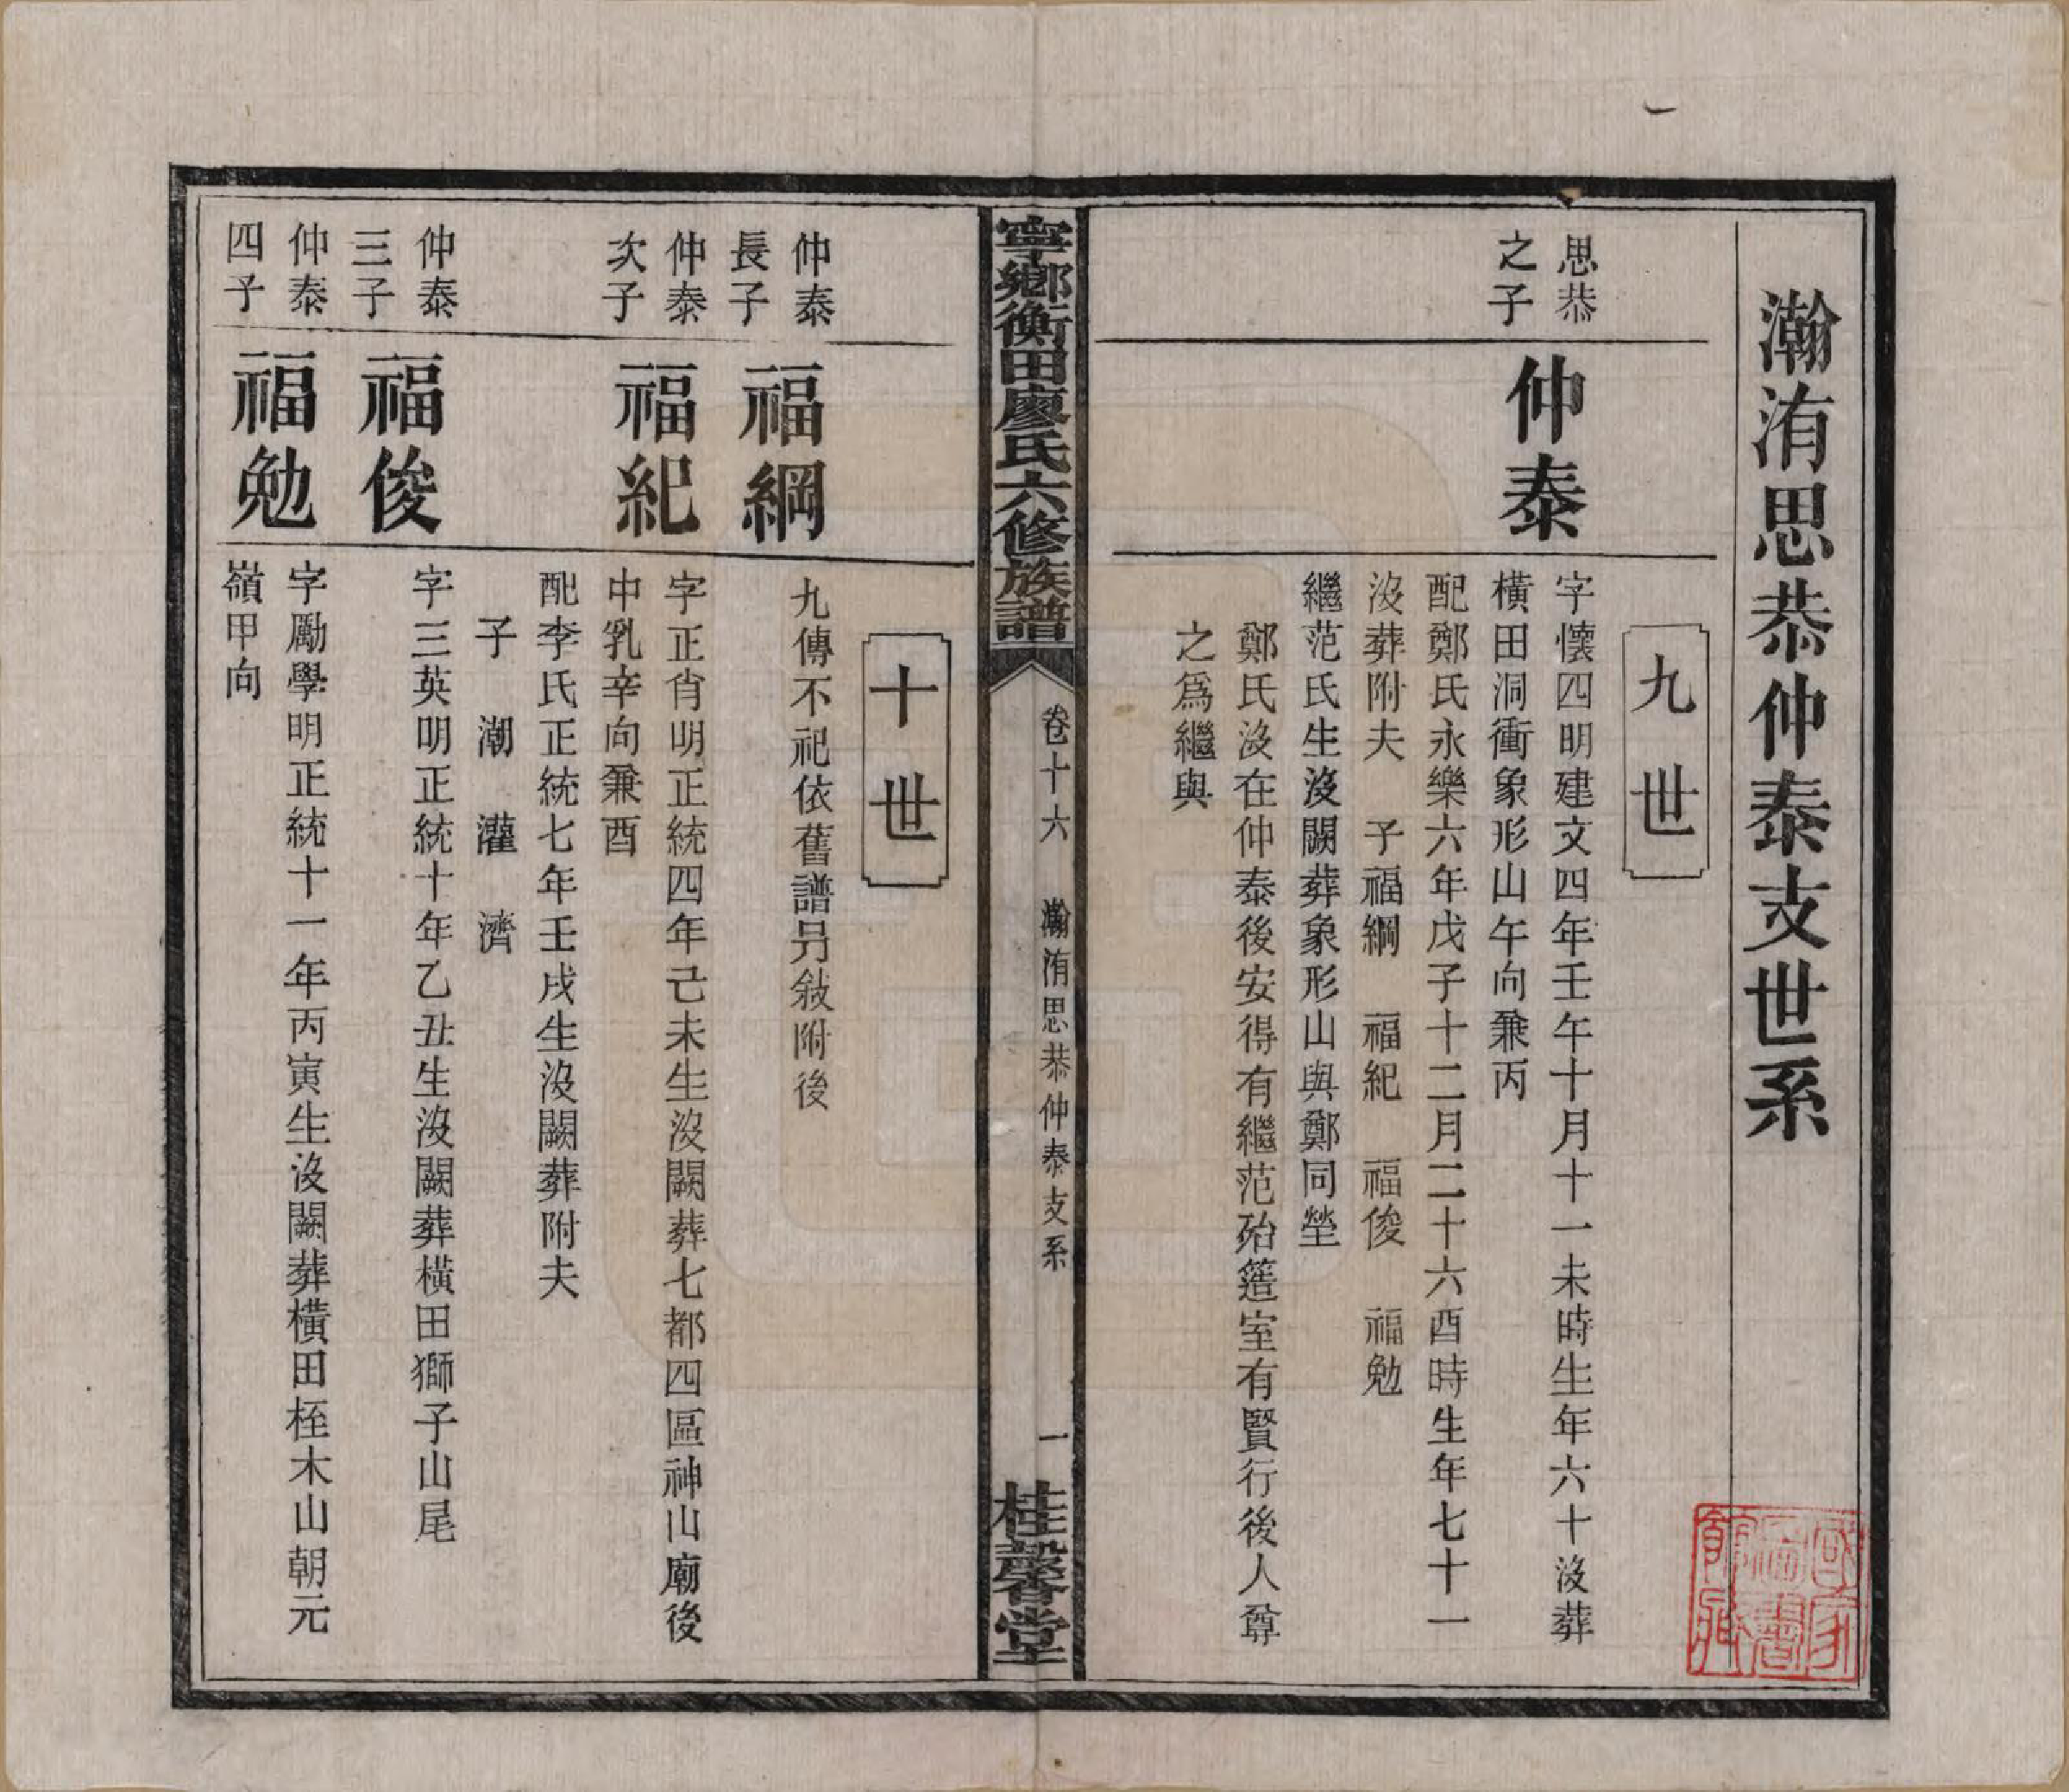 瀚洧思恭仲泰支世系
九世
思恭
之子
仲泰
字懷四明建文四年壬午十月十一未時生年六十沒葬
橫田洞衝象形山午向兼丙
配鄭氏永樂六年戊子十二月二十六酉時生年七十一
沒葬附夫　子福綱　福紀　福俊　福勉
繼范氏生沒闕葬象形山與鄭同塋
鄭氏沒在仲泰後安得有繼范殆簉室有賢行後人尊
之爲繼與
寧鄉衡田廖氏六修族譜
卷十六　瀚洧思恭仲泰支系
一
桂馨堂
十世
仲泰
長子
福綱
九傳不祀依舊譜另敍附後
仲泰
次子
福紀
字正肖明正統四年己未生沒闕葬七都四區神山廟後
中乳辛向兼酉
配李氏正統七年壬戌生沒闕葬附夫
子　潮　灌　濟
仲泰
三子
福俊
字三英明正統十年乙丑生沒闕葬橫田獅子山尾
仲泰
四子
福勉
字勵學明正統十一年丙寅生沒闕葬橫田桎木山朝元
嶺甲向